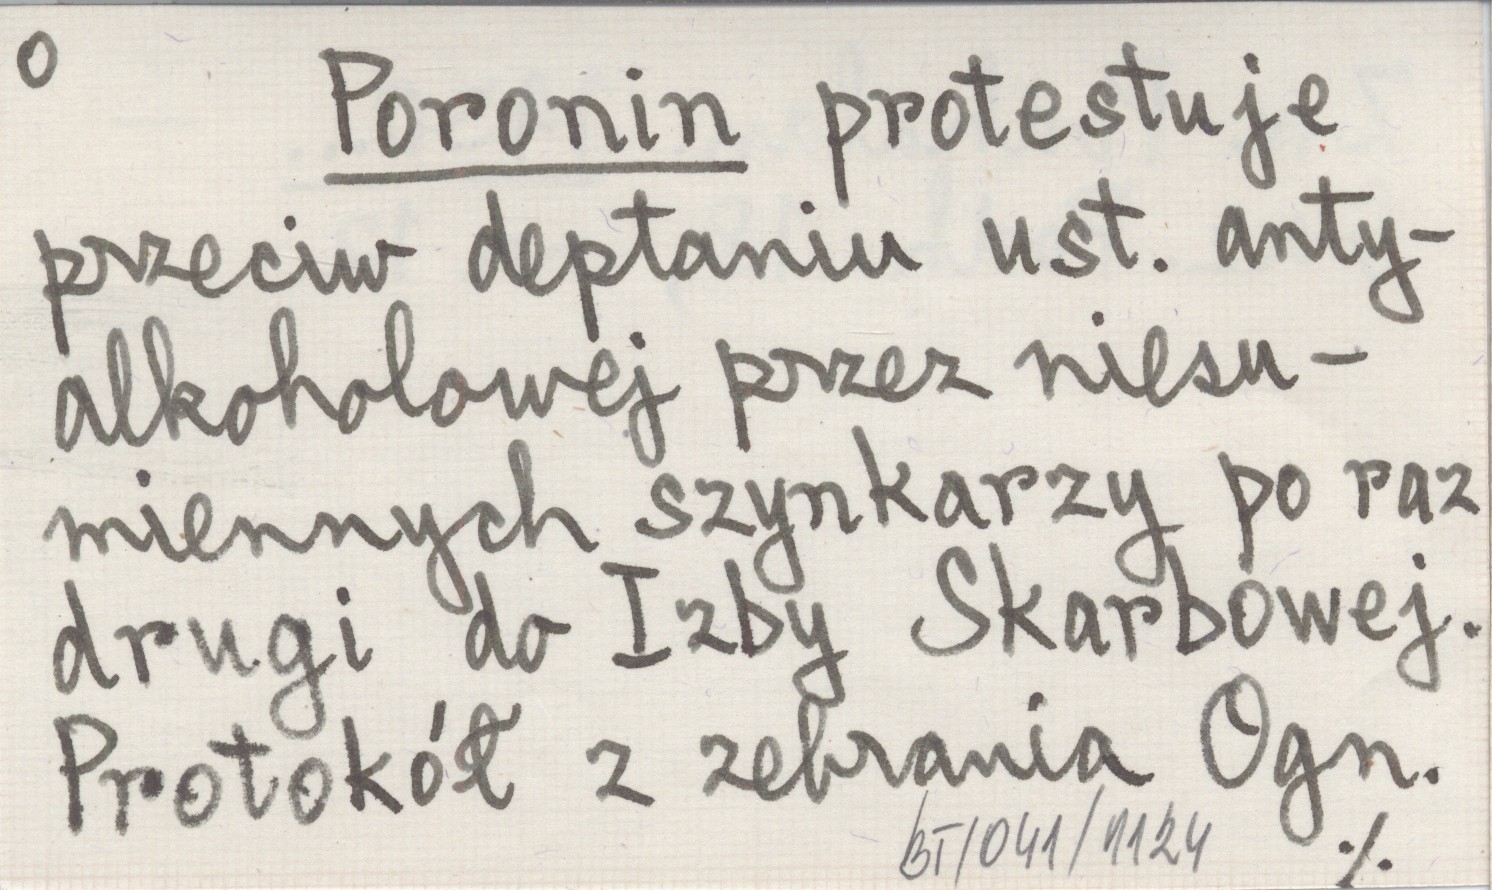 O
Poronin protestuje
przeciw deptaniu ust. anty-
alkoholowej przez niesu-
miennych szynkarzy po raz
drugi do Izby Skarbowej.
Protokół z zebrania Ogn.
BT/041/1124
./.